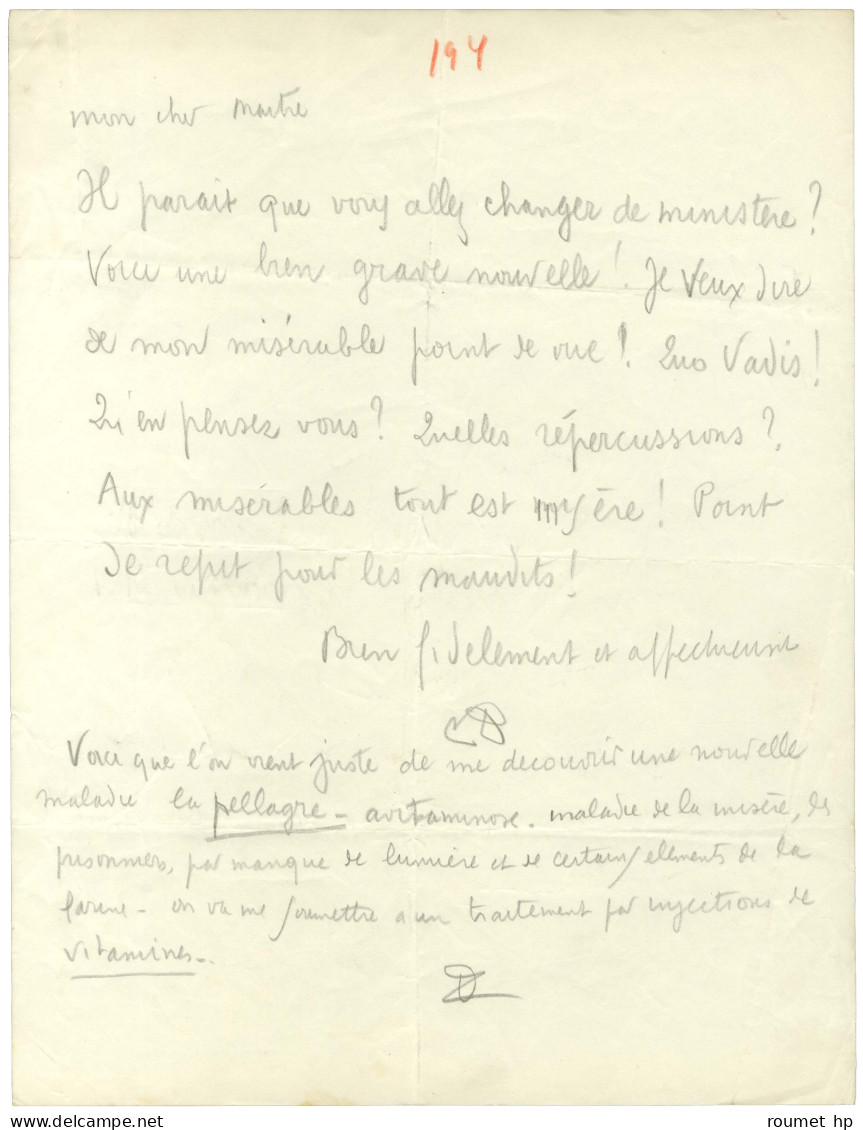 194
mon cher Maitre
Il parait que vous allez changer de ministère?
Voici une bien grave nouvelle! Je Veux dire
de mon misérable point de vue! Quo Vadis!
Qu'en pensez vous? Quelles répercussions?
Aux misérables tout est mystère! Point
de repit pour les maudits!
Bien fidelement et affectueusmt
Voici que l'on vient juste de me decouvrir une nouvelle
maladie la pellagre - avitaminose. maladie de la misère, des
prisonniers, par manque de lumière et de certains elements de la
farine - on va me soumettre a un traitement par injections de
vitamines -.
roumet hp